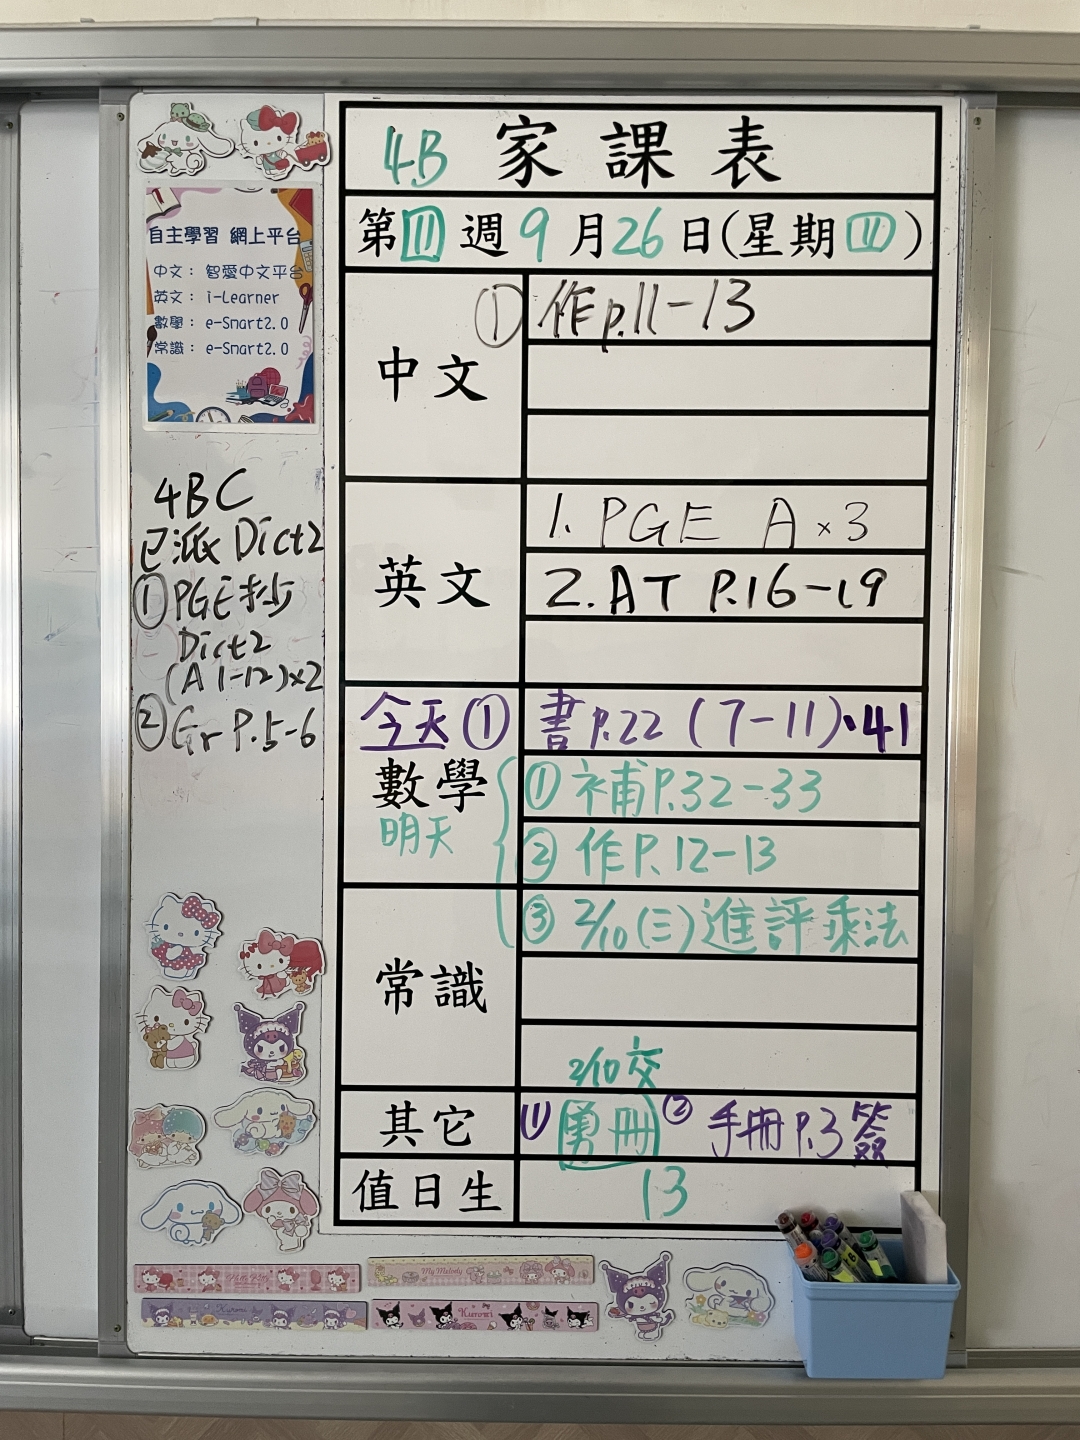 4B 家課表
第四週 9月26日(星期四)
中文
① 作p.11-13
英文
1. PGE A×3
2. AT P.16-19
數學
今天① 書p.22 (7-11)、41
明天
① 補P.32-33
② 作P.12-13
③ 2/10(三)進評乘法
常識
其它
2/10交
① 勇冊 ② 手冊p.3簽
值日生
13
自主學習 網上平台
中文： 智愛中文平台
英文： i-Learner
數學： e-Smart2.0
常識： e-Smart2.0
4BC
已派 Dict2
① PGE抄
Dict2
(A 1-12)×2
② Gr P.5-6
My Melody
Kuromi
Kuromi